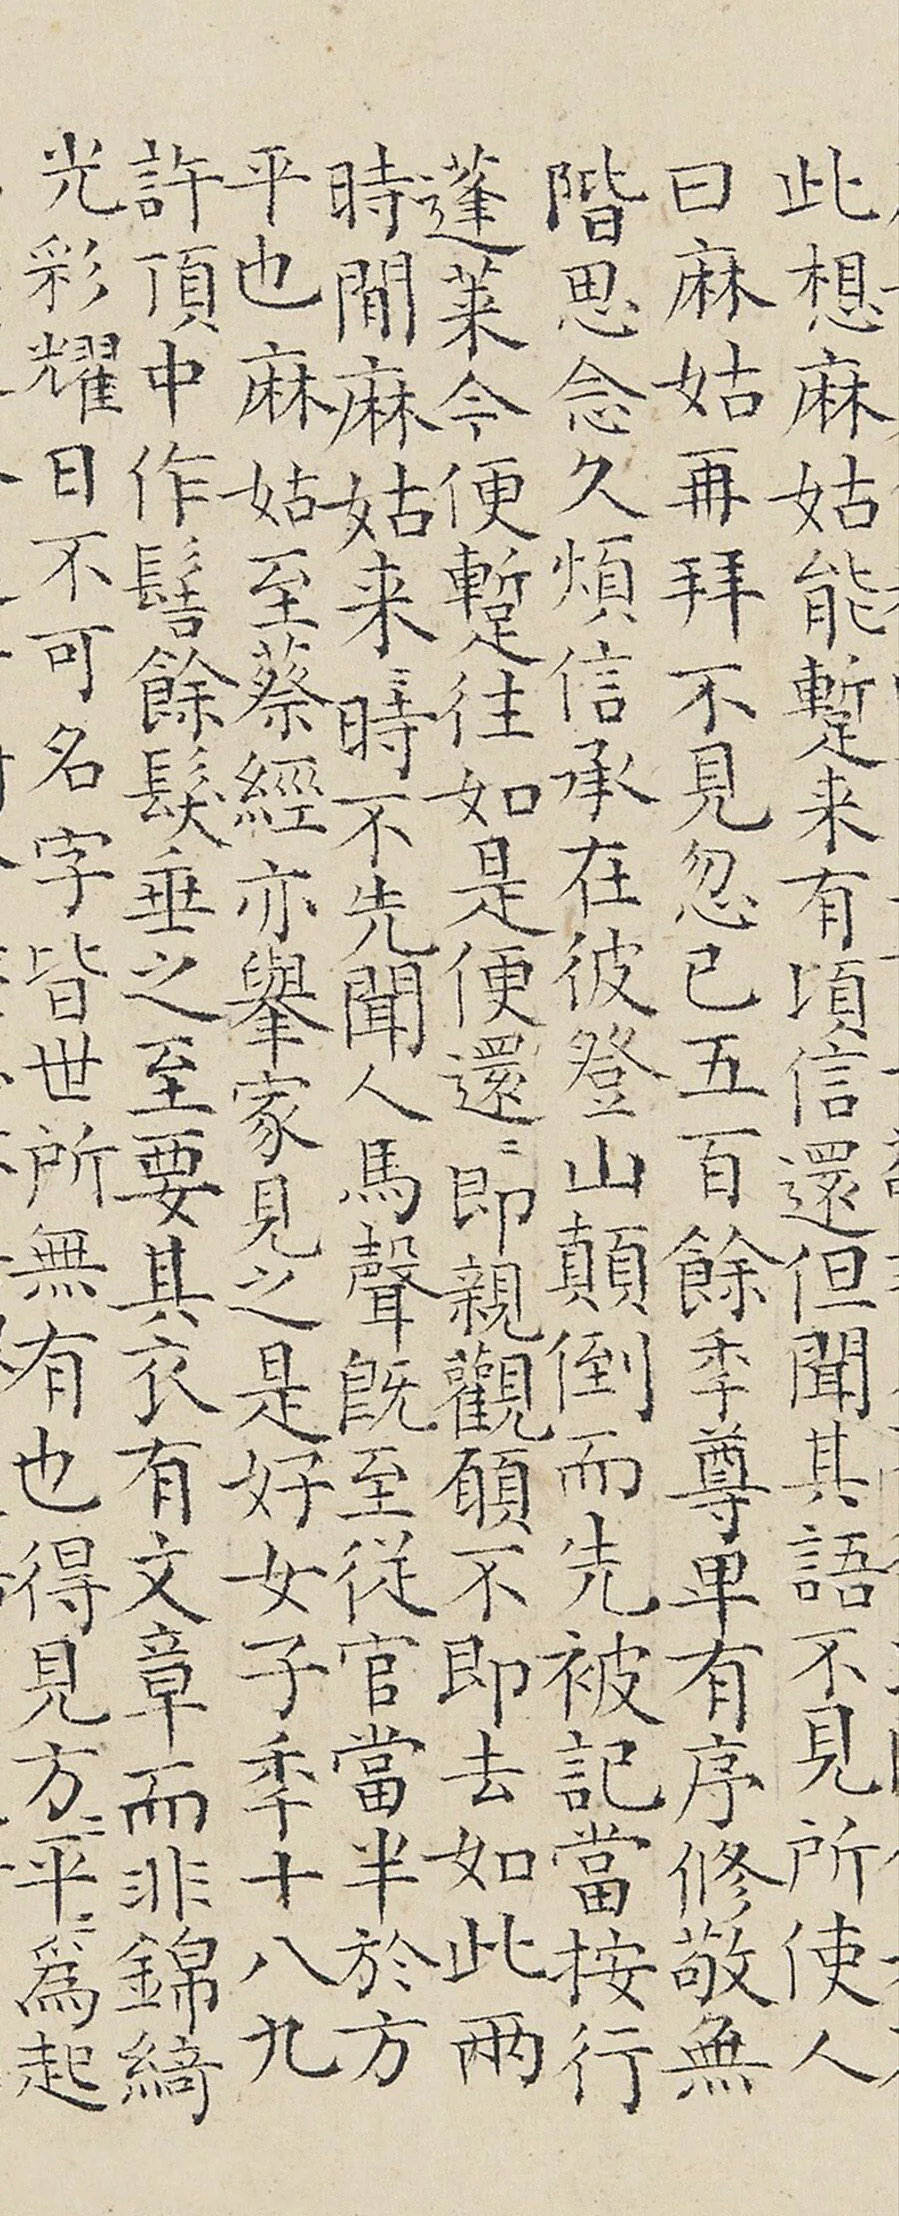 此想麻姑能蹔来有頃信還但聞其語不見所使人
曰麻姑再拜不見忽已五百餘季尊卑有序修敬無
階思念久煩信承在彼登山顛倒而先被記當按行
蓬莱今便蹔往如是便還〻即親觀願不即去如此兩
時間麻姑来〻時不先聞人馬聲旣至從官當半於方
平也麻姑至蔡經亦舉家見之是好女子季十八九
許頂中作髻餘髮垂之至要其衣有文章而非錦綺
光彩耀日不可名字皆世所無有也得見方〻平〻為起